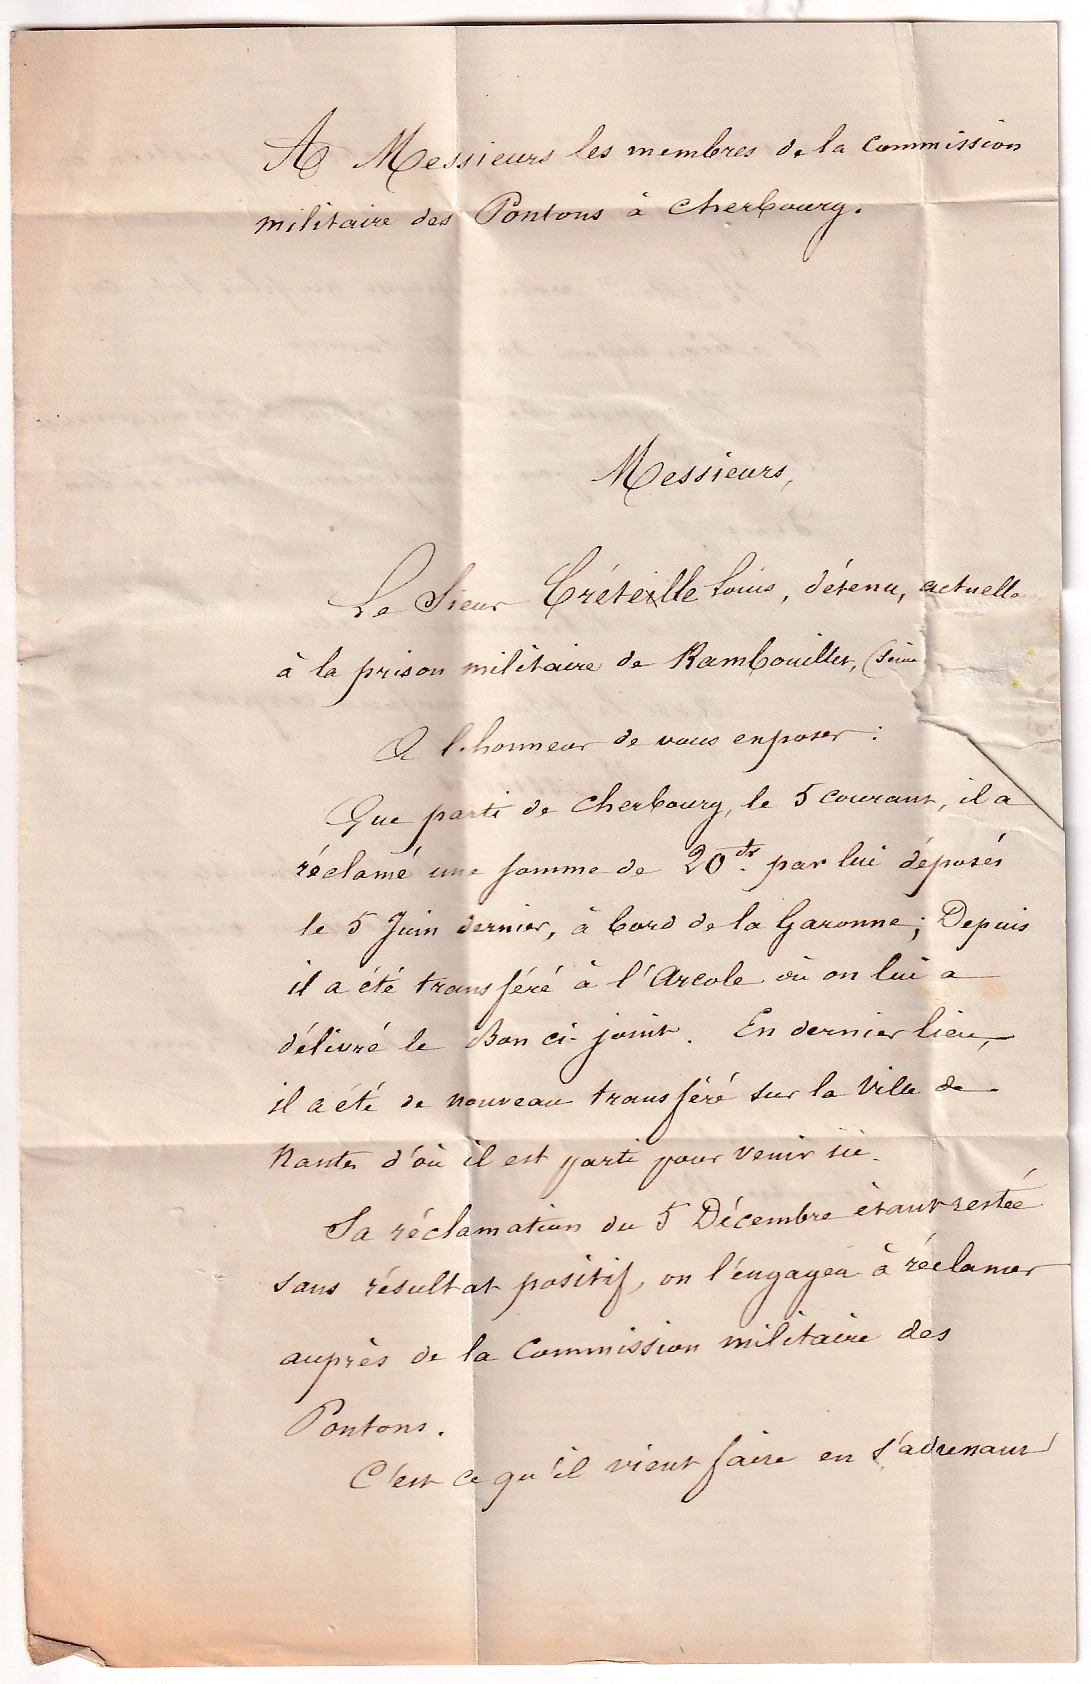 A Messieurs les membres de la Commission
militaire des Pontons à Cherbourg.
Messieurs,
Le Sieur Créteille Louis, détenu, actuelle
à la prison militaire de Rambouillet, (Seine
A l'honneur de vous exposer :
Que parti de Cherbourg, le 5 courant, il a
réclamé une somme de 20 par lui déposés
le 5 Juin dernier, à bord de la Garonne ; Depuis
il a été transféré à l'Arcole où on lui a
délivré le Bon ci-joint. En dernier lieu,
il a été de nouveau transféré sur la Ville de
Nantes d'où il est parti pour venir ici.
Sa réclamation du 5 Décembre étant restée
sans résultat positif, on l'engagea à réclamer
auprès de la Commission militaire des
Pontons.
C'est ce qu'il vient faire en s'adressant